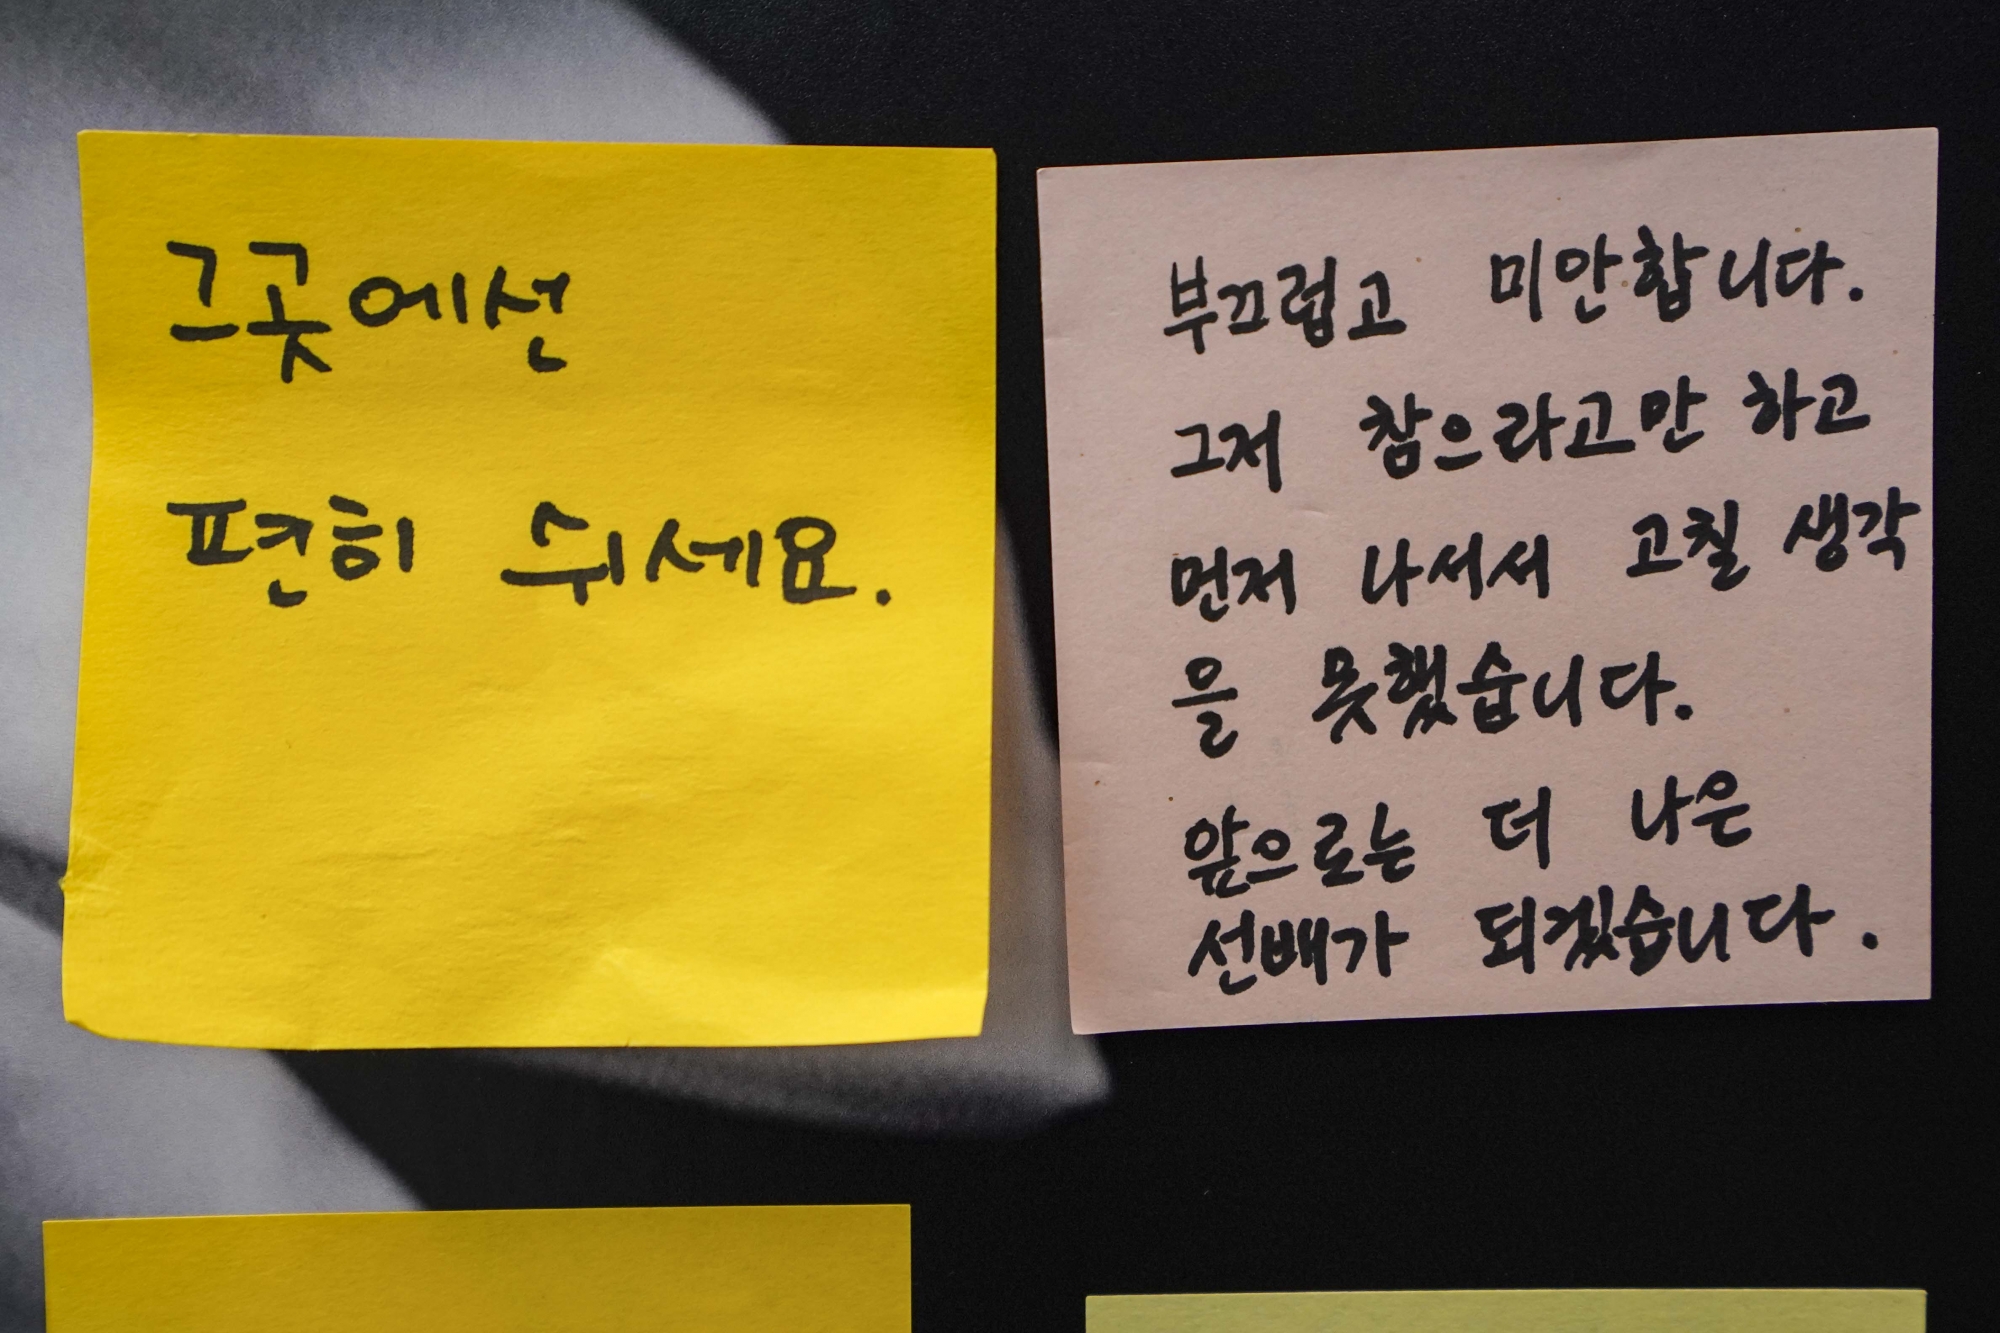 그곳에선
편히 쉬세요.
부끄럽고 미안합니다.
그저 참으라고만 하고
먼저 나서서 고칠 생각
을 못했습니다.
앞으로는 더 나은
선배가 되겠습니다.